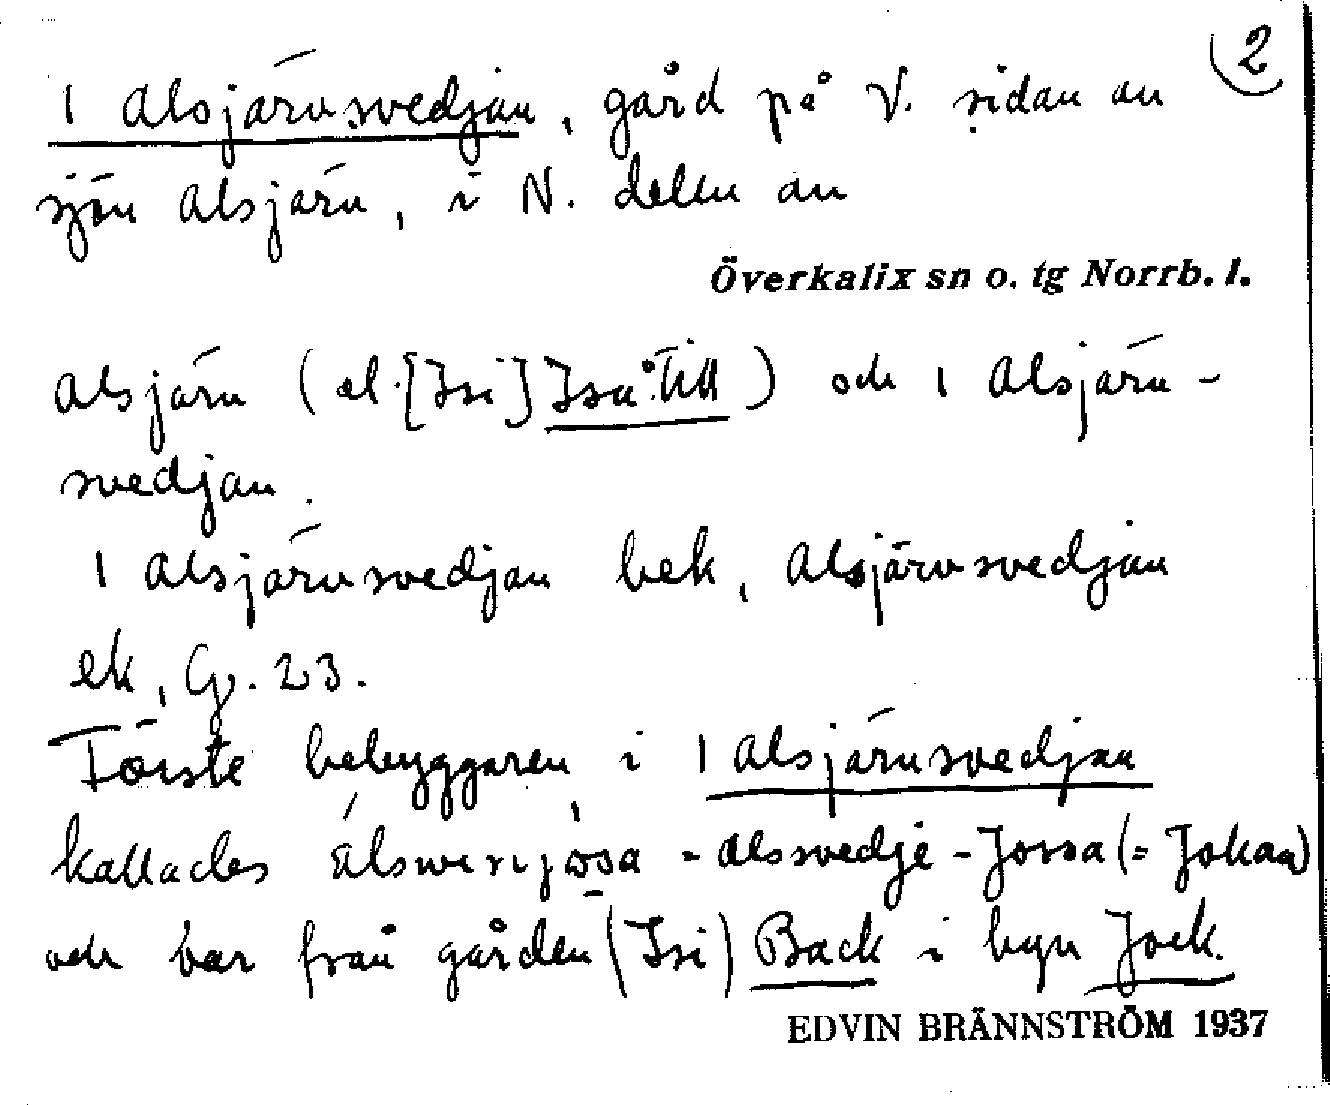 2
1 Alsjärvsvedjan, gård på V. sidan av
sjön Alsjärv, i N. delen av
Överkalix sn o. tg Norrb. l.
Alsjärv (el. [Isi] Isa Till) och 1 Alsjärv-
svedjan.
1 Alsjärvsvedjan bek, Alsjärvsvedjan
ek, G. 23.
Förste bebyggaren i 1 Alsjärvsvedjan
kallades - Alssvedje-Jossa (= Johan)
och var från gården (Isi) Back i byn Jock.
EDVIN BRÄNNSTRÖM 1937